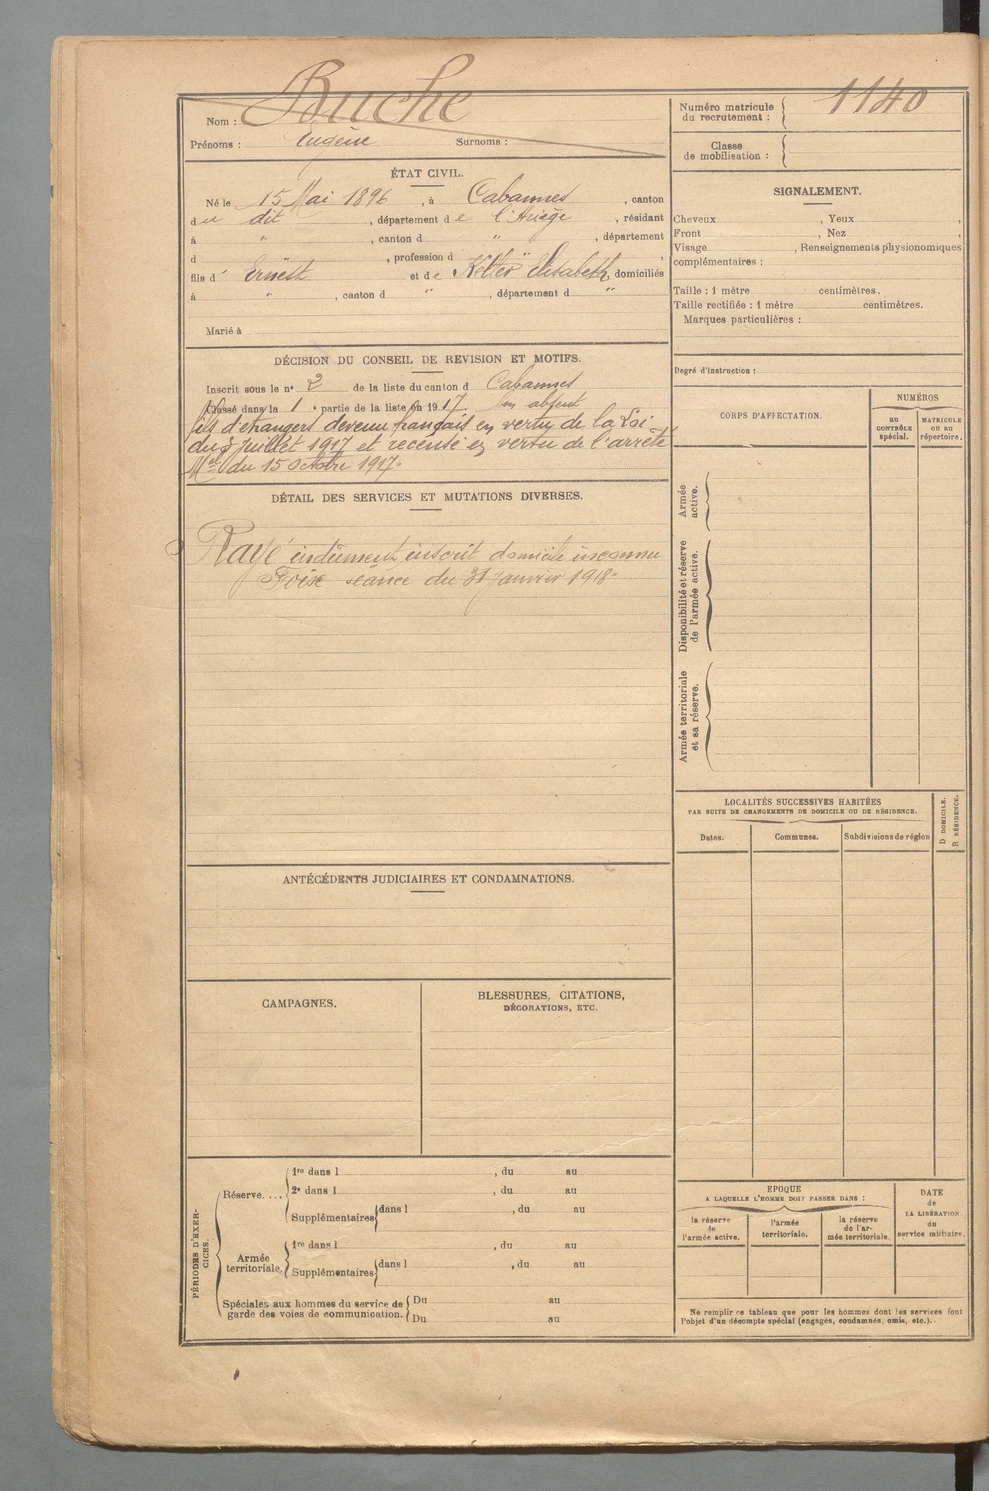 Nom : Buche
Prénoms : Eugène Surnoms :
Numéro matricule
du recrutement : 1140
Classe
de mobilisation :
ÉTAT CIVIL.
Né le 15 Mai 1896, à Cabannes, canton
du dit, département de l'Ariège, résidant
à ", canton d ", département
d , profession d " ,
fils d' Ernest et de Elisabeth, domiciliés
à ", canton d ", département d "
Marié à
SIGNALEMENT.
Cheveux , Yeux ,
Front , Nez ,
Visage , Renseignements physionomiques
complémentaires :
Taille : 1 mètre centimètres.
Taille rectifiée : 1 mètre centimètres.
Marques particulières :
Degré d'instruction :
DÉCISION DU CONSEIL DE REVISION ET MOTIFS.
Inscrit sous le n° 2 de la liste du canton d Cabannes
Classé dans la 1e partie de la liste en 1917. bon absent
fils d'étrangers devenu français en vertu de la Loi
du 3 Juillet 1917 et recensé en vertu de l'arrêté
Mel du 15 Octobre 1917.
DÉTAIL DES SERVICES ET MUTATIONS DIVERSES.
Rayé indûment inscrit domicile inconnu
Foix séance du 31 janvier 1918.
CORPS D'AFFECTATION.
NUMÉROS
AU
CONTRÔLE
spécial.
MATRICULE
OU AU
répertoire.
Armée
active.
Disponibilité et réserve
de l'armée active.
Armée territoriale
et sa réserve.
LOCALITÉS SUCCESSIVES HABITÉES
PAR SUITE DE CHANGEMENTS DE DOMICILE OU DE RÉSIDENCE.
D DOMICILE.
R RÉSIDENCE.
Dates. Communes. Subdivisions de région
ANTÉCÉDENTS JUDICIAIRES ET CONDAMNATIONS.
CAMPAGNES.
BLESSURES, CITATIONS,
DÉCORATIONS, ETC.
PÉRIODES D'EXER-
CICES.
Réserve....
1re dans l , du au
2e dans l , du au
Supplémentaires dans l , du au
Armée
territoriale.
1re dans l , du au
Supplémentaires dans l , du au
Spéciales aux hommes du service de
garde des voies de communication.
Du au
Du au
EPOQUE
A LAQUELLE L'HOMME DOIT PASSER DANS :
la réserve
de
l'armée active.
l'armée
territoriale.
la réserve
de l'ar-
mée territoriale.
DATE
de
LA LIBÉRATION
du
service militaire.
Ne remplir ce tableau que pour les hommes dont les services font
l'objet d'un décompte spécial (engagés, condamnés, omis, etc.).